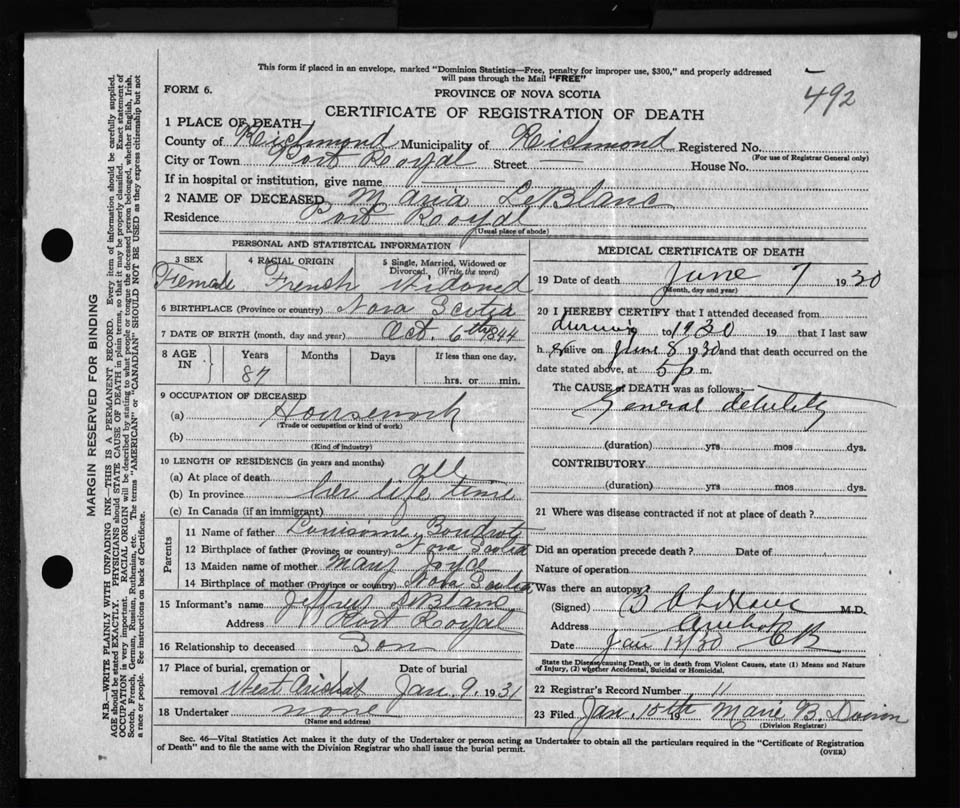 This form if placed in an envelope, marked "Dominion Statistics—Free, penalty for improper use, $300," and properly addressed
will pass through the Mail "FREE"
FORM 6.
PROVINCE OF NOVA SCOTIA
492
CERTIFICATE OF REGISTRATION OF DEATH
1 PLACE OF DEATH—
County of Richmond Municipality of Richmond Registered No.
(For use of Registrar General only)
City or Town Port Royal Street — House No.
If in hospital or institution, give name
2 NAME OF DECEASED Maria LeBlanc
Residence Port Royal
(Usual place of abode)
PERSONAL AND STATISTICAL INFORMATION
3 SEX 4 RACIAL ORIGIN 5 Single, Married, Widowed or
Divorced. (Write the word)
Female French Widowed
6 BIRTHPLACE (Province or country) Nova Scotia
7 DATE OF BIRTH (month, day and year) Oct. 6th 1844
8 AGE IN Years Months Days If less than one day,
87 hrs. or min.
9 OCCUPATION OF DECEASED
(a) Housework
(Trade or occupation or kind of work)
(b)
(Kind of industry)
10 LENGTH OF RESIDENCE (in years and months)
(a) At place of death all
(b) In province her life time
(c) In Canada (if an immigrant)
Parents
11 Name of father Boudrot
12 Birthplace of father (Province or country) Nova Scotia
13 Maiden name of mother Mary Joyce
14 Birthplace of mother (Province or country) Nova Scotia
15 Informant's name Jeffrey LeBlanc
Address Port Royal
16 Relationship to deceased Son
17 Place of burial, cremation or Date of burial
removal West Arichat Jan. 9, 1931
18 Undertaker none
(Name and address)
MEDICAL CERTIFICATE OF DEATH
19 Date of death June 7 1930
(Month, day and year)
20 I HEREBY CERTIFY that I attended deceased from
during to 1930 19 that I last saw
h er alive on June 8 1930 and that death occurred on the
date stated above, at 5 p m.
The CAUSE of DEATH was as follows:—
General debility
(duration) yrs mos dys.
CONTRIBUTORY
(duration) yrs mos dys.
21 Where was disease contracted if not at place of death?
Did an operation precede death? Date of
Nature of operation
Was there an autopsy?
(Signed) M.D.
Address Arichat CB
Date Jan 13/30
State the Disease causing Death, or in death from Violent Causes, state (1) Means and Nature
of Injury, (2) whether Accidental, Suicidal or Homicidal.
22 Registrar's Record Number 11
23 Filed Jan. 10th Marie B.
(Division Registrar)
Sec. 46—Vital Statistics Act makes it the duty of the Undertaker or person acting as Undertaker to obtain all the particulars required in the "Certificate of Registration
of Death" and to file the same with the Division Registrar who shall issue the burial permit.
(OVER)
MARGIN RESERVED FOR BINDING
N.B.—WRITE PLAINLY WITH UNFADING INK—THIS IS A PERMANENT RECORD. Every item of information should be carefully supplied.
AGE should be stated EXACTLY. PHYSICIANS should STATE CAUSE OF DEATH in plain terms, so that it may be properly classified. Exact statement of
OCCUPATION is very important. RACIAL ORIGIN will be described by stating to what people or tongue the deceased person belonged, whether English, Irish,
Scotch, French, German, Russian, Ruthenian, etc. The terms "AMERICAN" or "CANADIAN" SHOULD NOT BE USED as they express citizenship but not
a race or people. See instructions on back of Certificate.